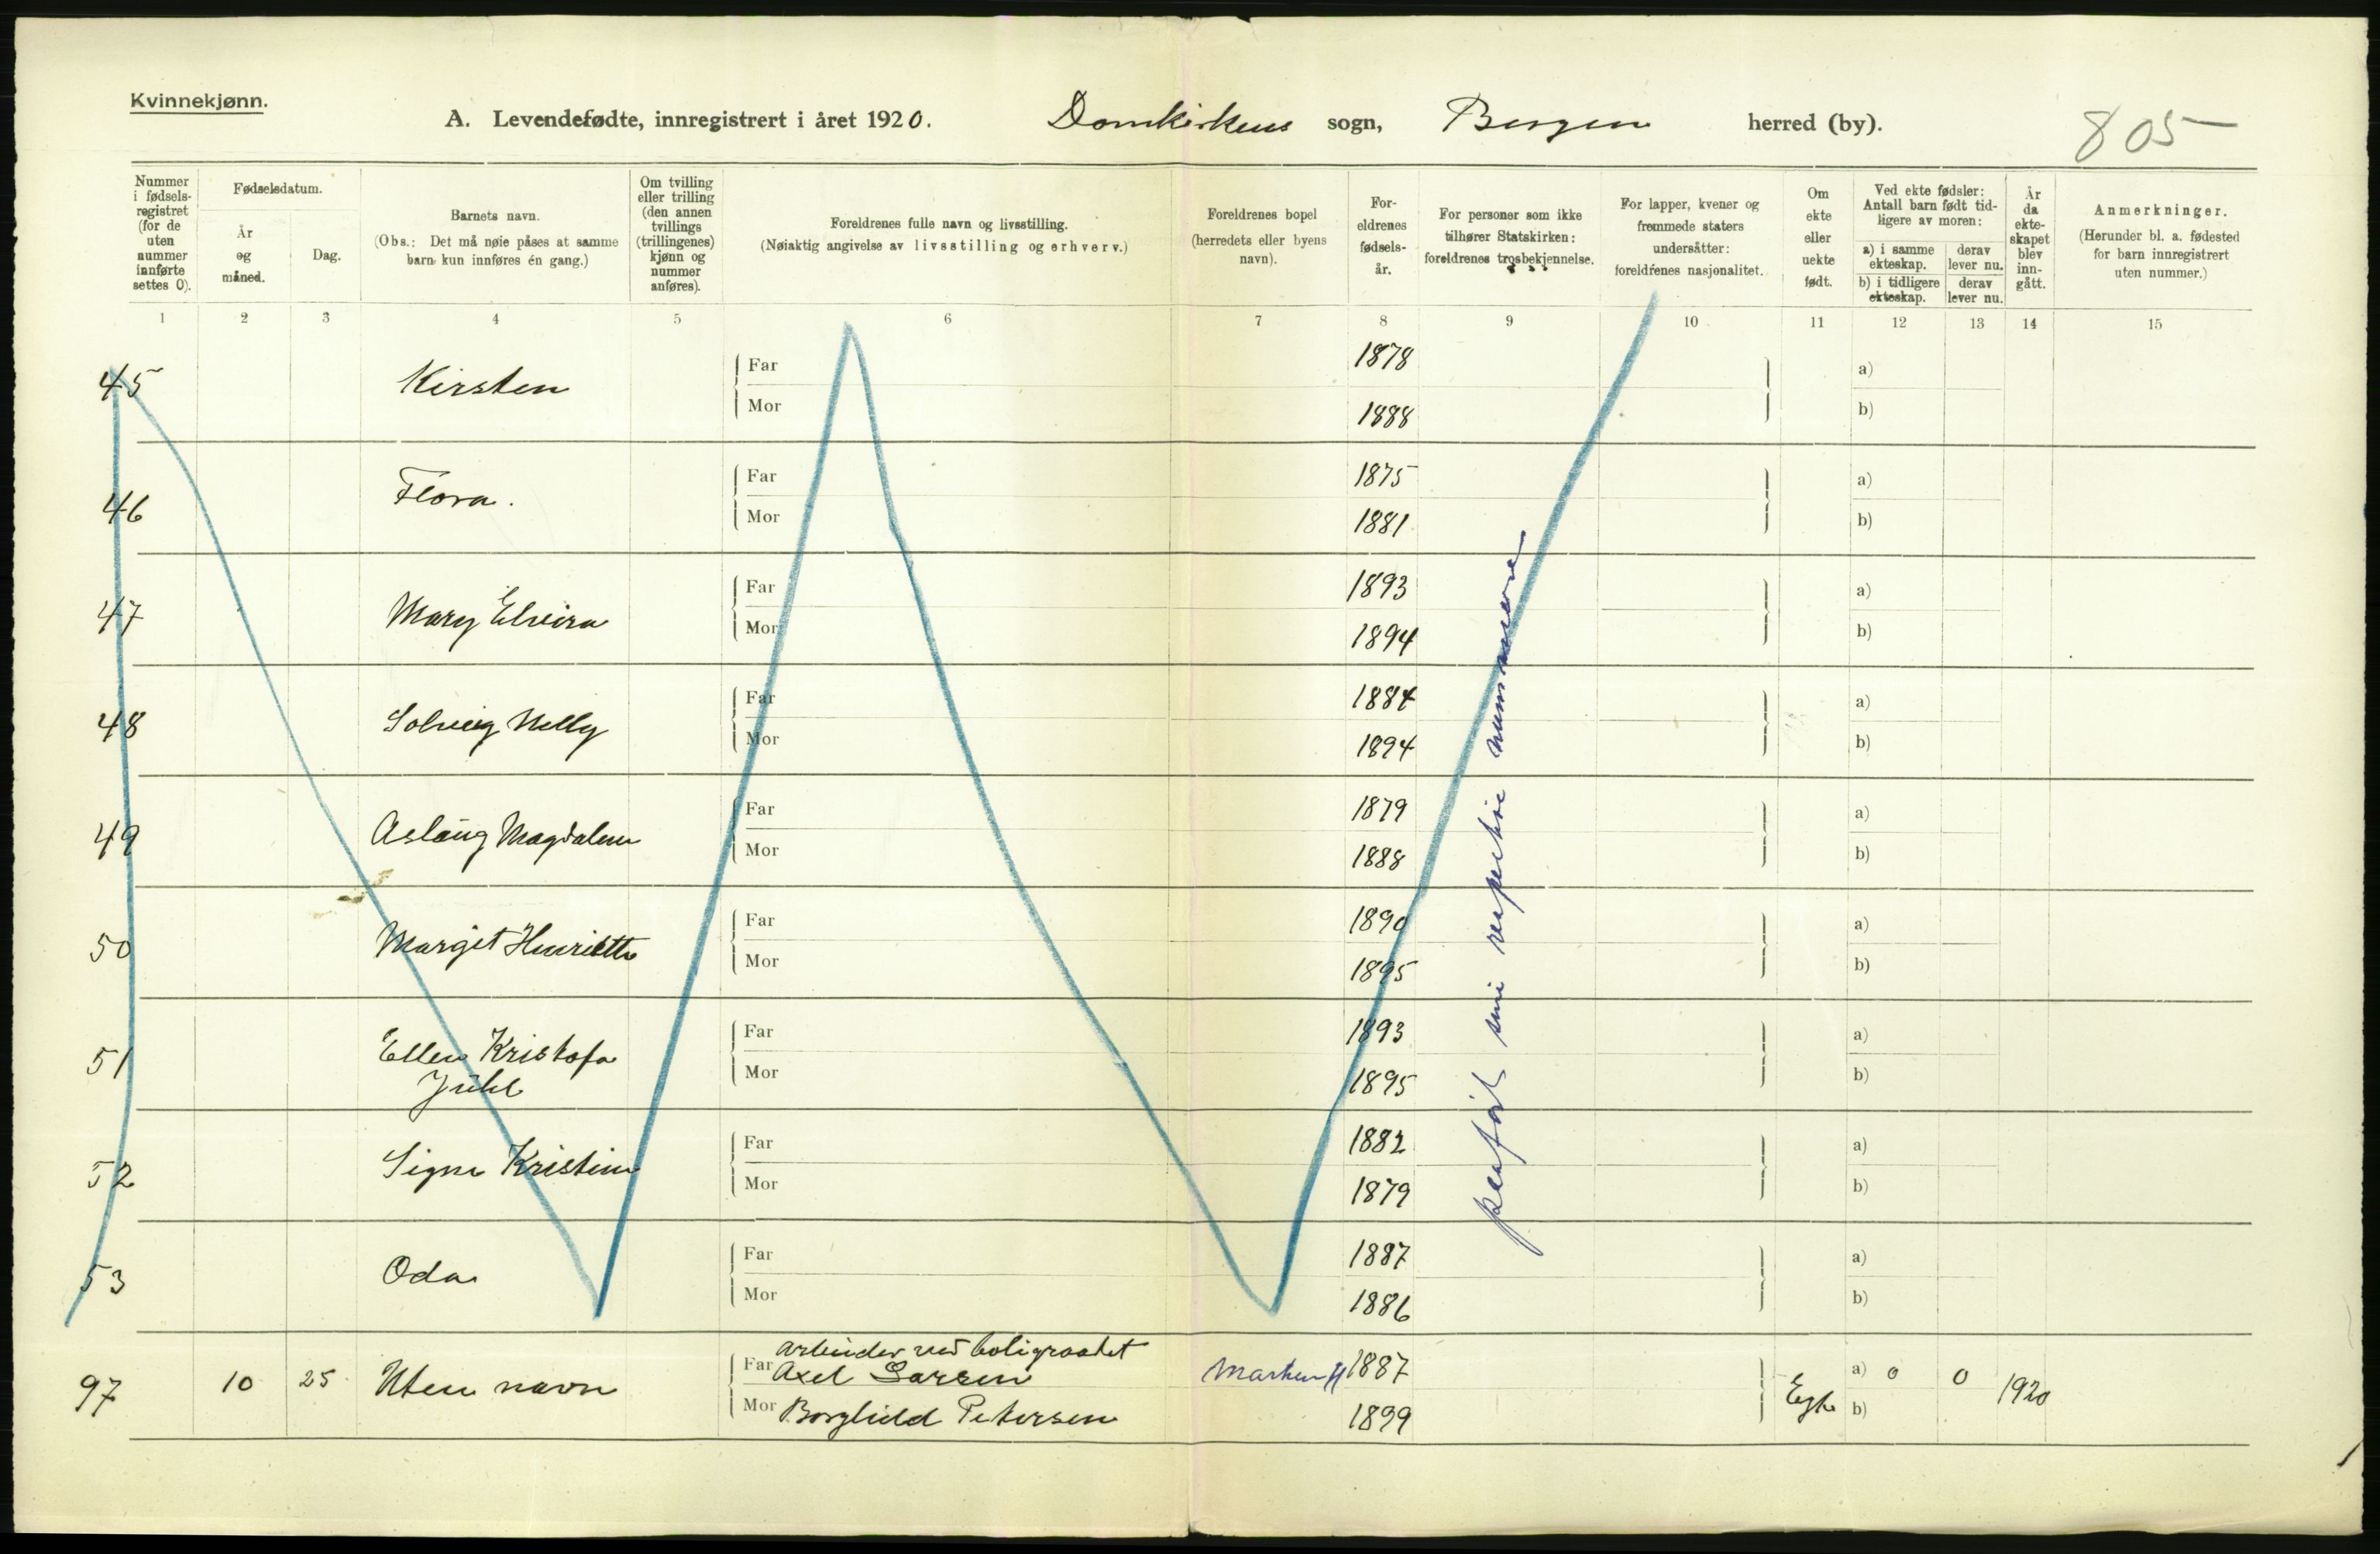 Kvinnekjønn.
A. Levendefødte, innregistrert i året 1920. Domkirkens sogn, Bergen herred (by).
805
Nummer i fødsels-registret (for de uten nummer innførte settes 0).
Fødselsdatum.
År og måned.
Dag.
Barnets navn.
(Obs.: Det må nøie påses at samme barn kun innføres én gang.)
Om tvilling eller trilling (den annen tvillings (trillingenes) kjønn og nummer anføres).
Foreldrenes fulle navn og livsstilling.
(Nøiaktig angivelse av livsstilling og erhverv.)
Foreldrenes bopel (herredets eller byens navn).
For-eldrenes fødsels-år.
For personer som ikke tilhører Statskirken: foreldrenes trosbekjennelse.
For lapper, kvener og fremmede staters undersåtter: foreldrenes nasjonalitet.
Om ekte eller uekte født.
Ved ekte fødsler: Antall barn født tid-ligere av moren:
a) i samme ekteskap.
derav lever nu.
b) i tidligere ekteskap.
derav lever nu.
År da ekte-skapet blev inn-gått.
Anmerkninger.
(Herunder bl. a. fødested for barn innregistrert uten nummer.)
1 2 3 4 5 6 7 8 9 10 11 12 13 14 15
45 Kirsten Far 1878 a)
Mor 1888 b)
46 Flora. Far 1875 a)
Mor 1881 b)
47 Mary Elvira Far 1893 a)
Mor 1894 b)
48 Solveig Nelly Far 1884 a)
Mor 1894 b)
49 Aslaug Magdalene Far 1879 a)
Mor 1888 b)
50 Margit Henriette Far 1890 a)
Mor 1895 b)
51 Ellen Kristofa Far 1893 a)
Juhl Mor 1895 b)
52 Signe Kristine Far 1882 a)
Mor 1879 b)
53 Oda Far 1887 a)
Mor 1886 b)
sine respektive nummere
arbeider ved boligraadet
97 10 25 Uten navn Far Axel Larsen Marken 1887 Egte a) 0 0 1920
Mor Borghild Petersen 1899 b)